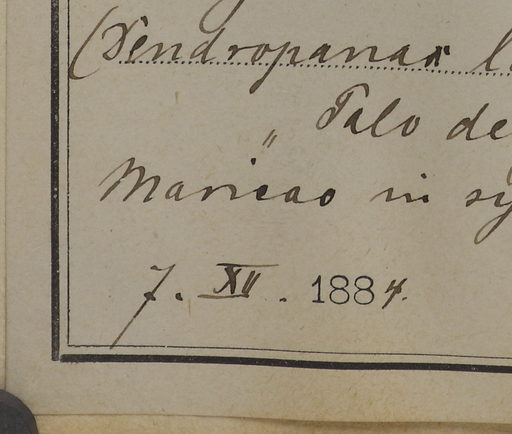 (Dendropanax
„ Palo de
Maricao in
7. XII. 1884.